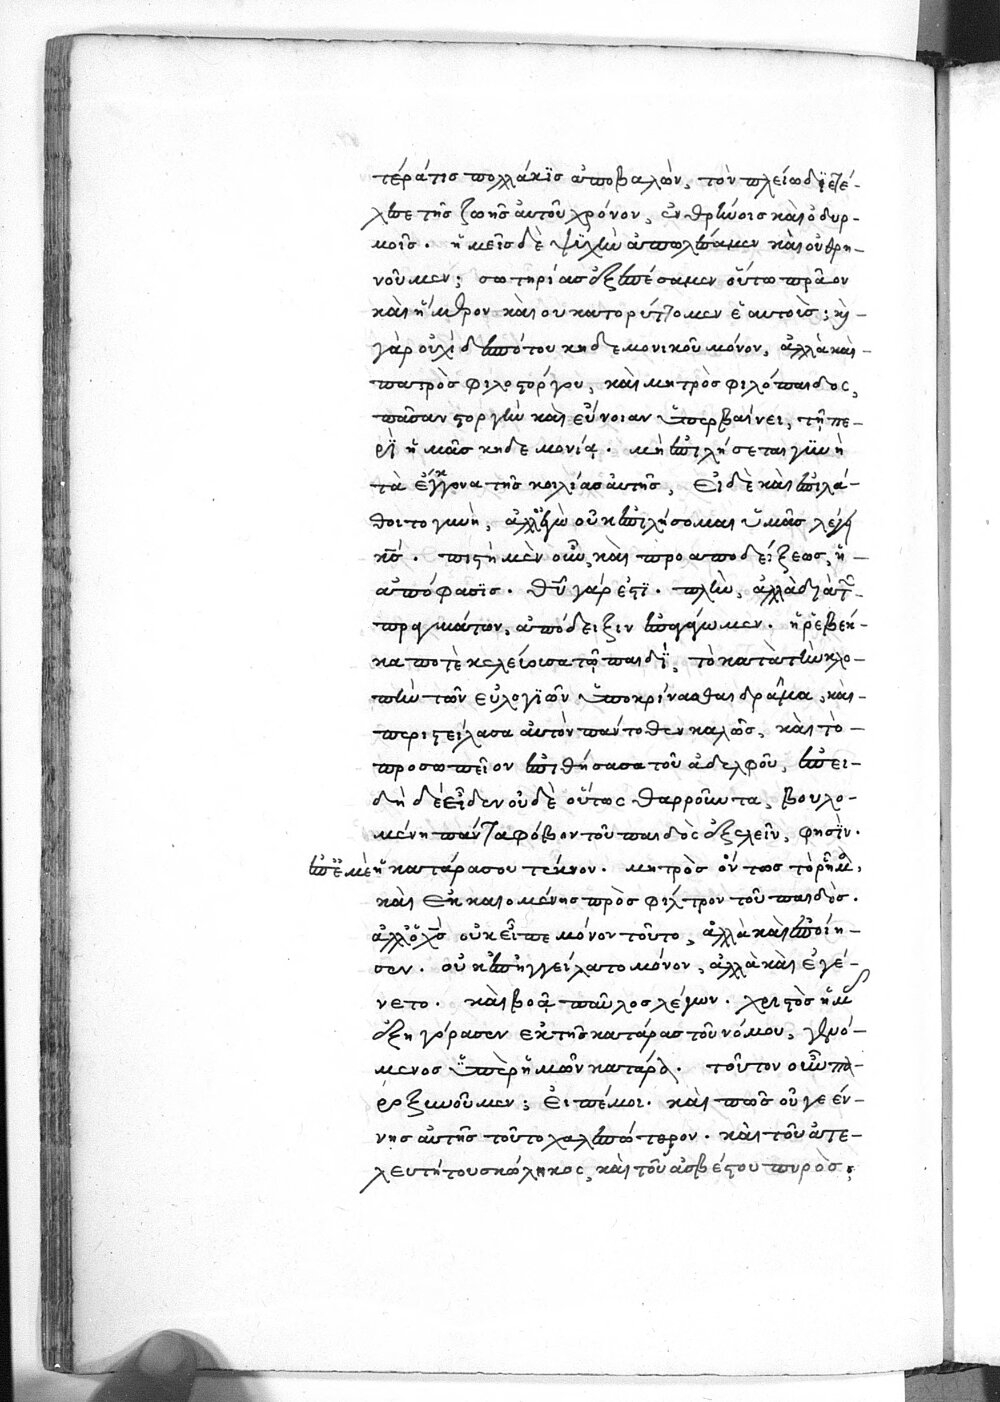 τέρά τις πολλάκϊς ἀποβαλὼν, τὸν πλείω δϊετέ-
λεσε τῆς ζωῆς αὐτοῦ χρόνον, ἐν θρήνοις καὶ ὀδυρ-
μοῖς. ἡμεῖς δὲ ψϋχὴν ἀπωλέσαμεν καὶ οὐ θρη-
νοῦμεν; σωτηρίας ἐξεπέσαμεν οὕτω πρᾶον
καὶ ἥμερον καὶ οὐ κατορύττομεν ἑαυτοὺς; καὶ
γὰρ οὐχὶ δεσπότου κηδεμονικοῦ μόνον, ἀλλὰ καὶ
πατρὸς φιλοστόργου, καὶ μητρὸς φιλόπαιδος,
πᾶσαν στοργὴν καὶ εὔνοιαν ὑπερβαίνει, τῇ πε-
ρὶ ἡμᾶς κηδεμονίᾳ. μὴ ἐπιλήσεται γυνὴ
τὰ ἔγγονα τῆς κοιλίας αὐτῆς, Εἰ δὲ καὶ ἐπιλά-
θοιτο γυνὴ, ἀλλ' ἐγὼ οὐκ ἐπιλήσομαι ὑμᾶς λέγει
κς. πιστὴ μὲν οὖν, καὶ πρὸ ἀποδείξεως, ἡ
ἀπόφασϊς. θῦ γάρ ἐστϊ. πλὴν, ἀλλὰ διὰ τῶν
πραγμάτων, ἀπόδειξιν ἐπαγάγωμεν. ἡ ῥεβέκ-
κα ποτὲ κελεύουσα τῷ παιδὶ, τὸ κατὰ τὴν κλο-
πὴν τῶν εὐλογιῶν ὑποκρίνασθαι δρᾶμα, καὶ
περιστείλασα αὐτὸν πάντοθεν καλῶς, καὶ τὸ
προσωπεῖον ἐπιθήσασα τοῦ ἀδελφοῦ, ἐπει-
δὴ δέ εἶδεν οὐδὲ οὕτως θαρροῦντα, βουλο-
μένη πάντα φόβον τοῦ παιδὸς ἐξελεῖν, φησὶν.
ἐπ' ἐμὲ ἡ κατάρα σου τέκνον. μητρὸς ὄντως τὸ ῥῆμα,
καὶ ἐκκαιομένης πρὸς φίλτρον τοῦ παιδὸς.
ἀλλ' ὁ χς οὐκ εἶπε μόνον τοῦτο, ἀλλὰ καὶ ἐποίη-
σεν. οὐκ ἐπηγγείλατο μόνον, ἀλλὰ καὶ ἐγέ-
νετο. καὶ βοᾷ παῦλος λέγων. χριστὸς ἡμᾶς
ἐξηγόρασεν ἐκ τῆς κατάρας τοῦ νόμου, γενό-
μενος ὑπὲρ ἡμῶν κατάρα. τοῦτον οὖν πα-
ροξυνοῦμεν; Εἰπέ μοι. καὶ πῶς οὐ γεέν-
νης αὐτῆς τοῦτο χαλεπώτερον. καὶ τοῦ ἀτε-
λευτήτου σκώληκος, καὶ τοῦ ἀσβέστου πυρὸς;